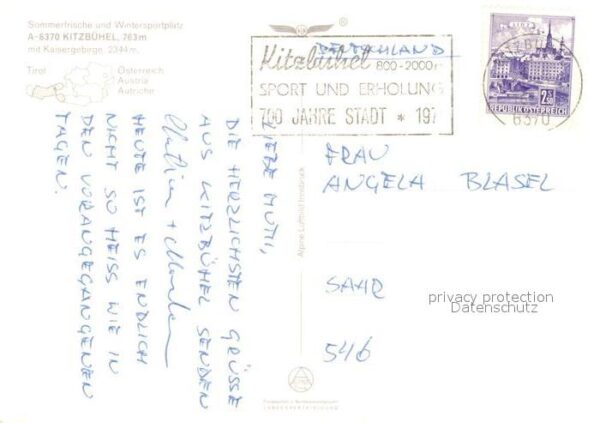 Sommerfrische und Wintersportplatz
A-6370 KITZBÜHEL, 763m
mit Kaisergebirge, 2344m,
Tirol
Österreich
Austria
Autriche
LIEBE MUTTI,
DIE HERZLICHSTEN GRÜSSE
AUS KITZBÜHEL SENDEN
HEUTE IST ES ENDLICH
NICHT SO HEISS WIE IN
DEN VORANGEGANGENEN
TAGEN.
Alpine Luftbild Innsbruck
DEUTSCHLAND
Kitzbühel 800-2000m
SPORT UND ERHOLUNG
700 JAHRE STADT * 197
LINZ
2.50
REPUBLIK ÖSTERREICH
6370
FRAU
ANGELA BLASEL
SAAR
546
privacy protection
Datenschutz